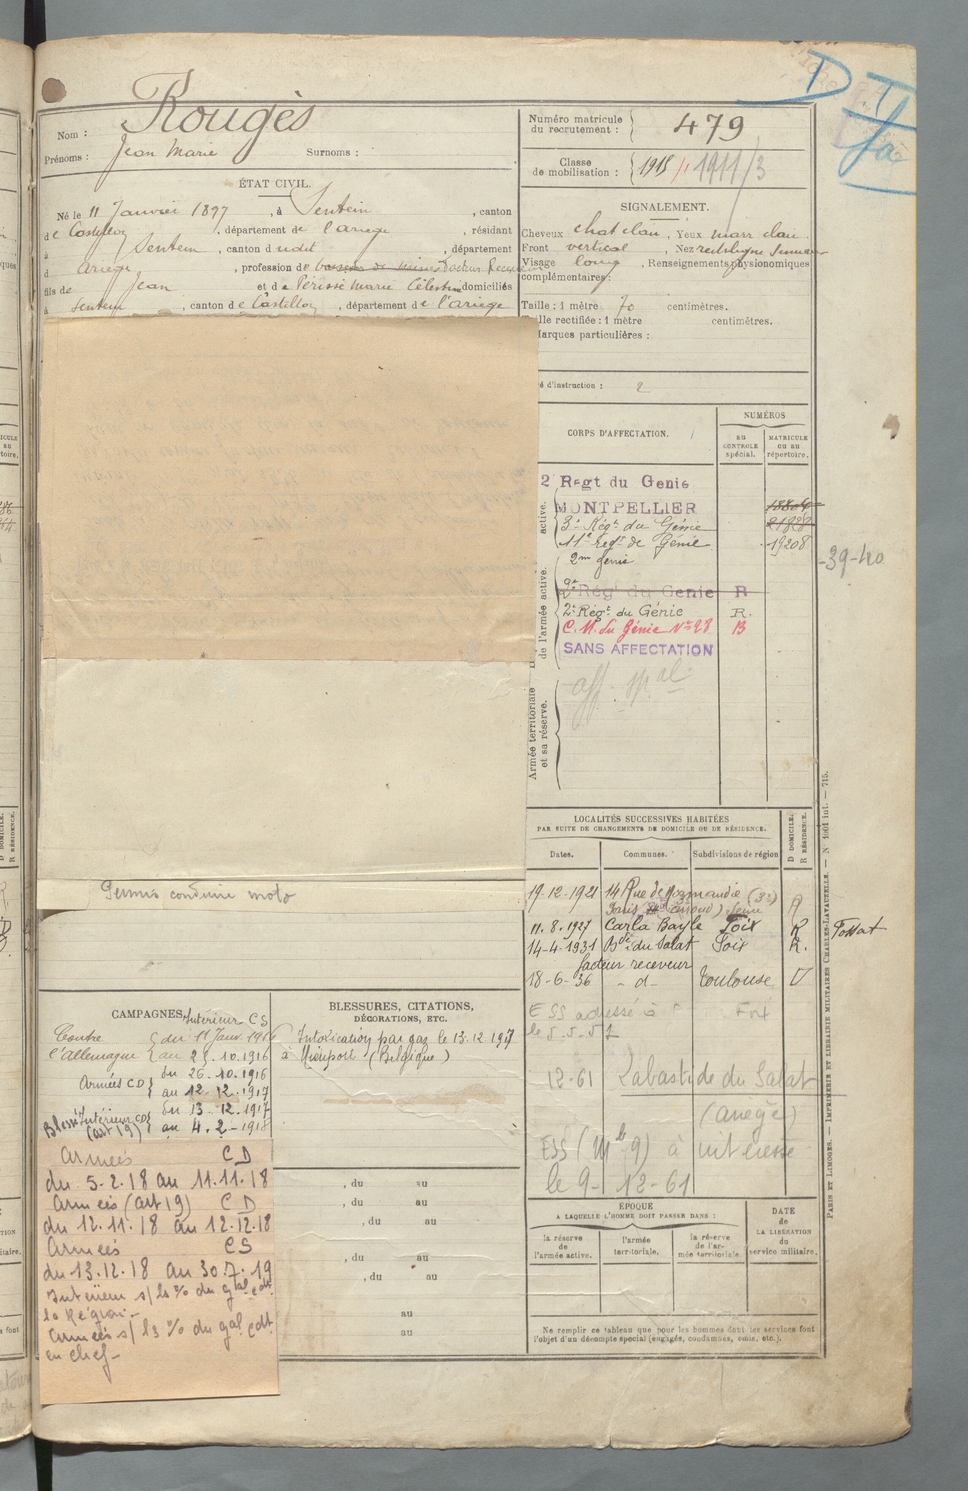 D.T
fa
Nom : Rougès
Prénoms : Jean Marie Surnoms :
Numéro matricule du recrutement : 479
Classe de mobilisation : 1918 1911/3
ÉTAT CIVIL.
Né le 11 Janvier 1897, à Sentein, canton
de Castillon, département de l'ariège, résidant
à Sentein, canton dudit, département
d ariège, profession de facteur Receveur
fils de Jean et de Périssé Marie Célestin domiciliés
à Sentein, canton de Castillon, département de l'ariège
SIGNALEMENT.
Cheveux chat clair, Yeux marr clair
Front vertical, Nez rectiligne
Visage long, Renseignements physionomiques
complémentaires :
Taille : 1 mètre 70 centimètres.
Taille rectifiée : 1 mètre centimètres.
Marques particulières :
é d'instruction : 2
CORPS D'AFFECTATION.
NUMÉROS
au CONTROLE spécial.
MATRICULE ou au répertoire.
2 Régt du Genie
MONTPELLIER
3e Régt du Génie
11e regt de Génie 19208
2me génie
2e Régt du Genie R
2e Régt du Génie R.
C. M. du Génie No 28 B
SANS AFFECTATION
aff. spale
active.
de l'armée active.
Armée territoriale et sa réserve.
39-40
LOCALITÉS SUCCESSIVES HABITÉES
PAR SUITE DE CHANGEMENTS DE DOMICILE OU DE RÉSIDENCE.
Dates. Communes. Subdivisions de région
D DOMICILE.
R RÉSIDENCE.
19.12.1921 14 Rue de Normandie (3e)
Paris Seine R
11.8.1927 Carla Bayle Foix R Fossat
14-4-1931 Bde du Salat Foix R.
facteur receveur
18-6-36 - d- Toulouse D
ESS adressé à
le 5.5.51
12-61 Labastide du Salat
(ariège)
ESS (Mle 9) à intéressé
le 9-12-61
Permis conduire moto
CAMPAGNES.
Intérieur CS
Contre l'Allemagne
du 11 Janv 1916
au 25.10.1916
Armées CD
du 26.10.1916
au 12.12.1917
Blessé Intérieur CD (art 19)
du 13.12.1917
au 4.2-1918
Armées CD
du 5.2.18 au 11.11.18
Armées (art 19) CD
du 12.11.18 au 12.12.18
Armées CS
du 13.12.18 au 30.7.19
Intérieur s/ls % du gal cdt
la Région -
Armées s/ls % du gal cdt
en chef -
BLESSURES, CITATIONS,
DÉCORATIONS, ETC.
Intoxication par gaz le 13.12.1917
à Nieuport (Belgique)
, du au
, du au
, du au
, du au
, du au
au
au
ÉPOQUE
A LAQUELLE L'HOMME DOIT PASSER DANS :
la réserve de l'armée active.
l'armée territoriale.
la réserve de l'armée territoriale.
DATE de LA LIBÉRATION du service militaire.
Ne remplir ce tableau que pour les hommes dont les services font
l'objet d'un décompte spécial (engagés, condamnés, omis, etc.).
PARIS ET LIMOGES. — IMPRIMERIE ET LIBRAIRIE MILITAIRES CHARLES-LAVAUZELLE. — N 1601 int. — 715.